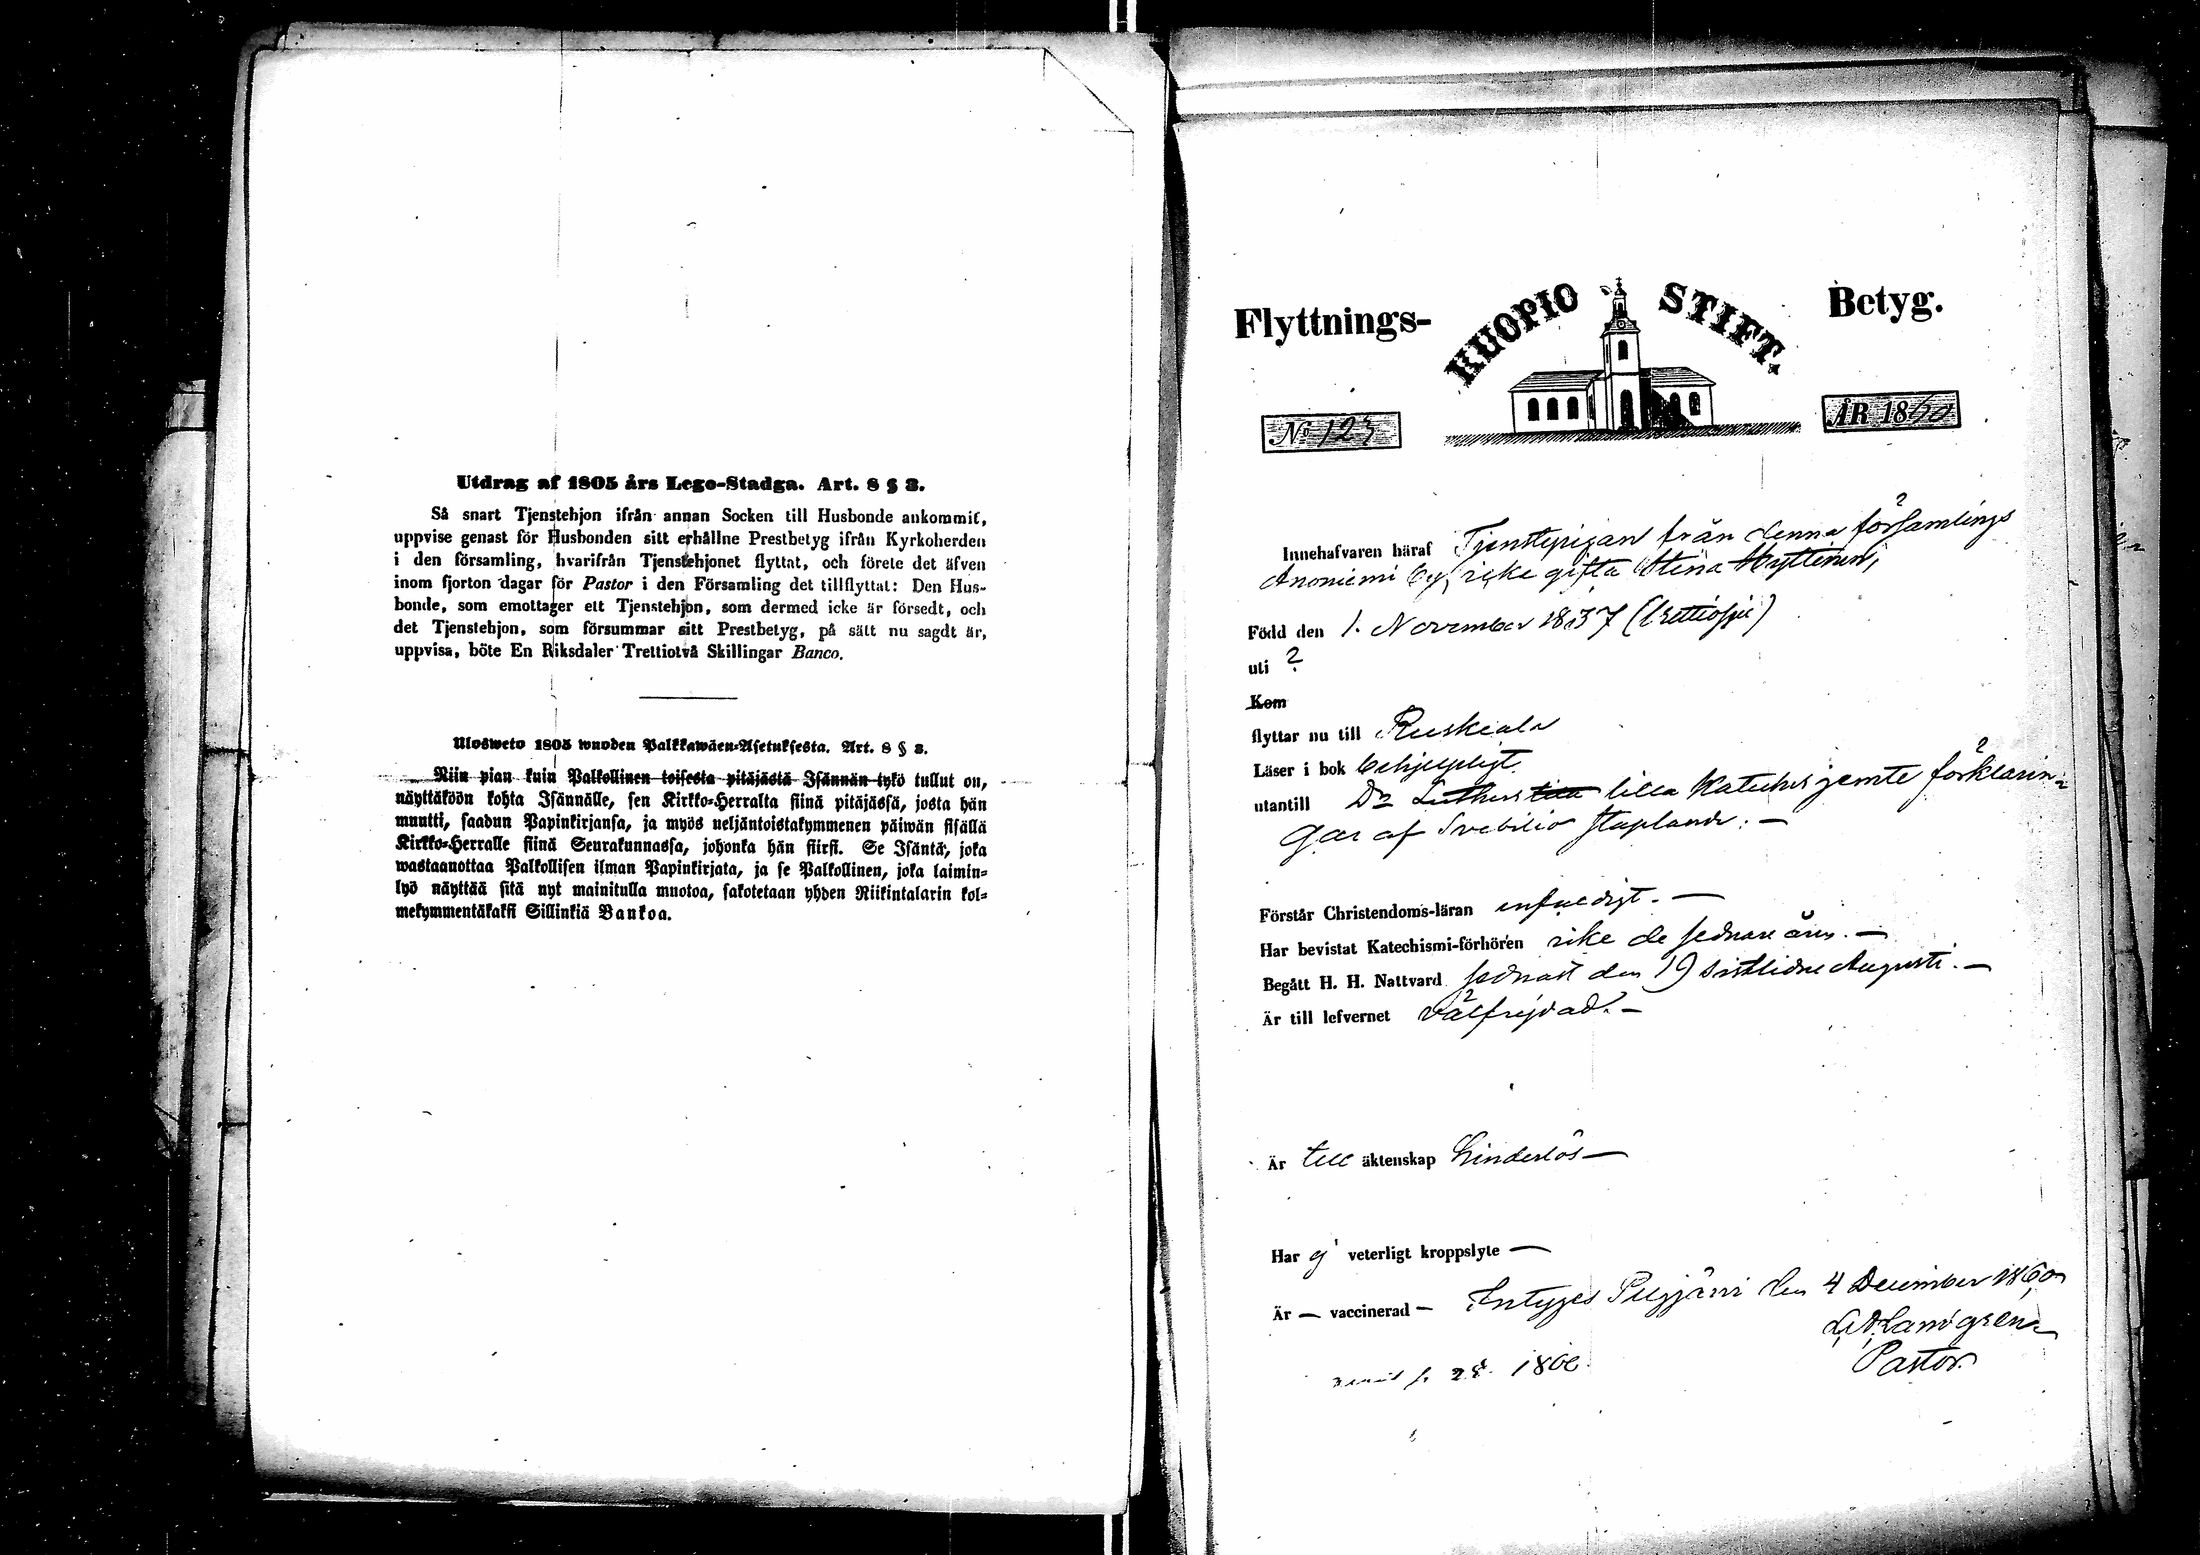 Utdrag af 1805 års Lego-Stadga. Art. 8 § 3.
Så snart Tjenstehjon ifrån annan Socken till Husbonde ankommit,
uppvise genast för Husbonden sitt erhållne Prestbetyg ifrån Kyrkoherden
i den församling, hvarifrån Tjenstehjonet flyttat, och förete det äfven
inom fjorton dagar för Pastor i den Församling det tillflyttat: Den Hus-
bonde, som emottager ett Tjenstehjon, som dermed icke är försedt, och
det Tjenstehjon, som försummar sitt Prestbetyg, på sätt nu sagdt är,
uppvisa, böte En Riksdaler Trettiotvå Skillingar Banco.
Ulosweto 1805 wuoden Palkkawäen-Asetuksesta. Art. 8 § 3.
Niin pian kuin Palkollinen toisesta pitäjästä Isännän tykö tullut on,
näyttäköön kohta Isännälle, sen Kirkko-Herralta siinä pitäjässä, josta hän
muutti, saadun Papinkirjansa, ja myös neljäntoistakymmenen päiwän sisällä
Kirkko-Herralle siinä Seurakunnassa, johonka hän siirsi. Se Isäntä, joka
wastaanottaa Palkollisen ilman Papinkirjata, ja se Palkollinen, joka laimin-
lyö näyttää sitä nyt mainitulla muotoa, sakotetaan yhden Riikintalarin kol-
mekymmentäkaksi Sillinkiä Bankoa.
Flyttnings- KUOPIO STIFT. Betyg.
No 123 ÅR 1860
Innehafvaren häraf Tjenstepigan från denna församlings
Anoniemi by, icke gifta Stina Hyttinen,
Född den 1. November 1837 (trettiosju)
uti ?
Kom
flyttar nu till Ruskeala
Läser i bok behjelpligt.
utantill Dr Luthers lilla Katches jemte förklarin-
gar af Svebilio staplande. —
Förstår Christendoms-läran enfaldigt. —
Har bevistat Katechismi-förhören icke de sednare åren. —
Begått H. H. Nattvard sednast den 19 sistlidne Augusti. —
Är till lefvernet välfrejdad. —
Är till äktenskap hinderlös —
Har ej veterligt kroppslyte —
Är — vaccinerad — Intygas Pelgjärvi den 4 December 1860,
Landgren
Pastor.
1860